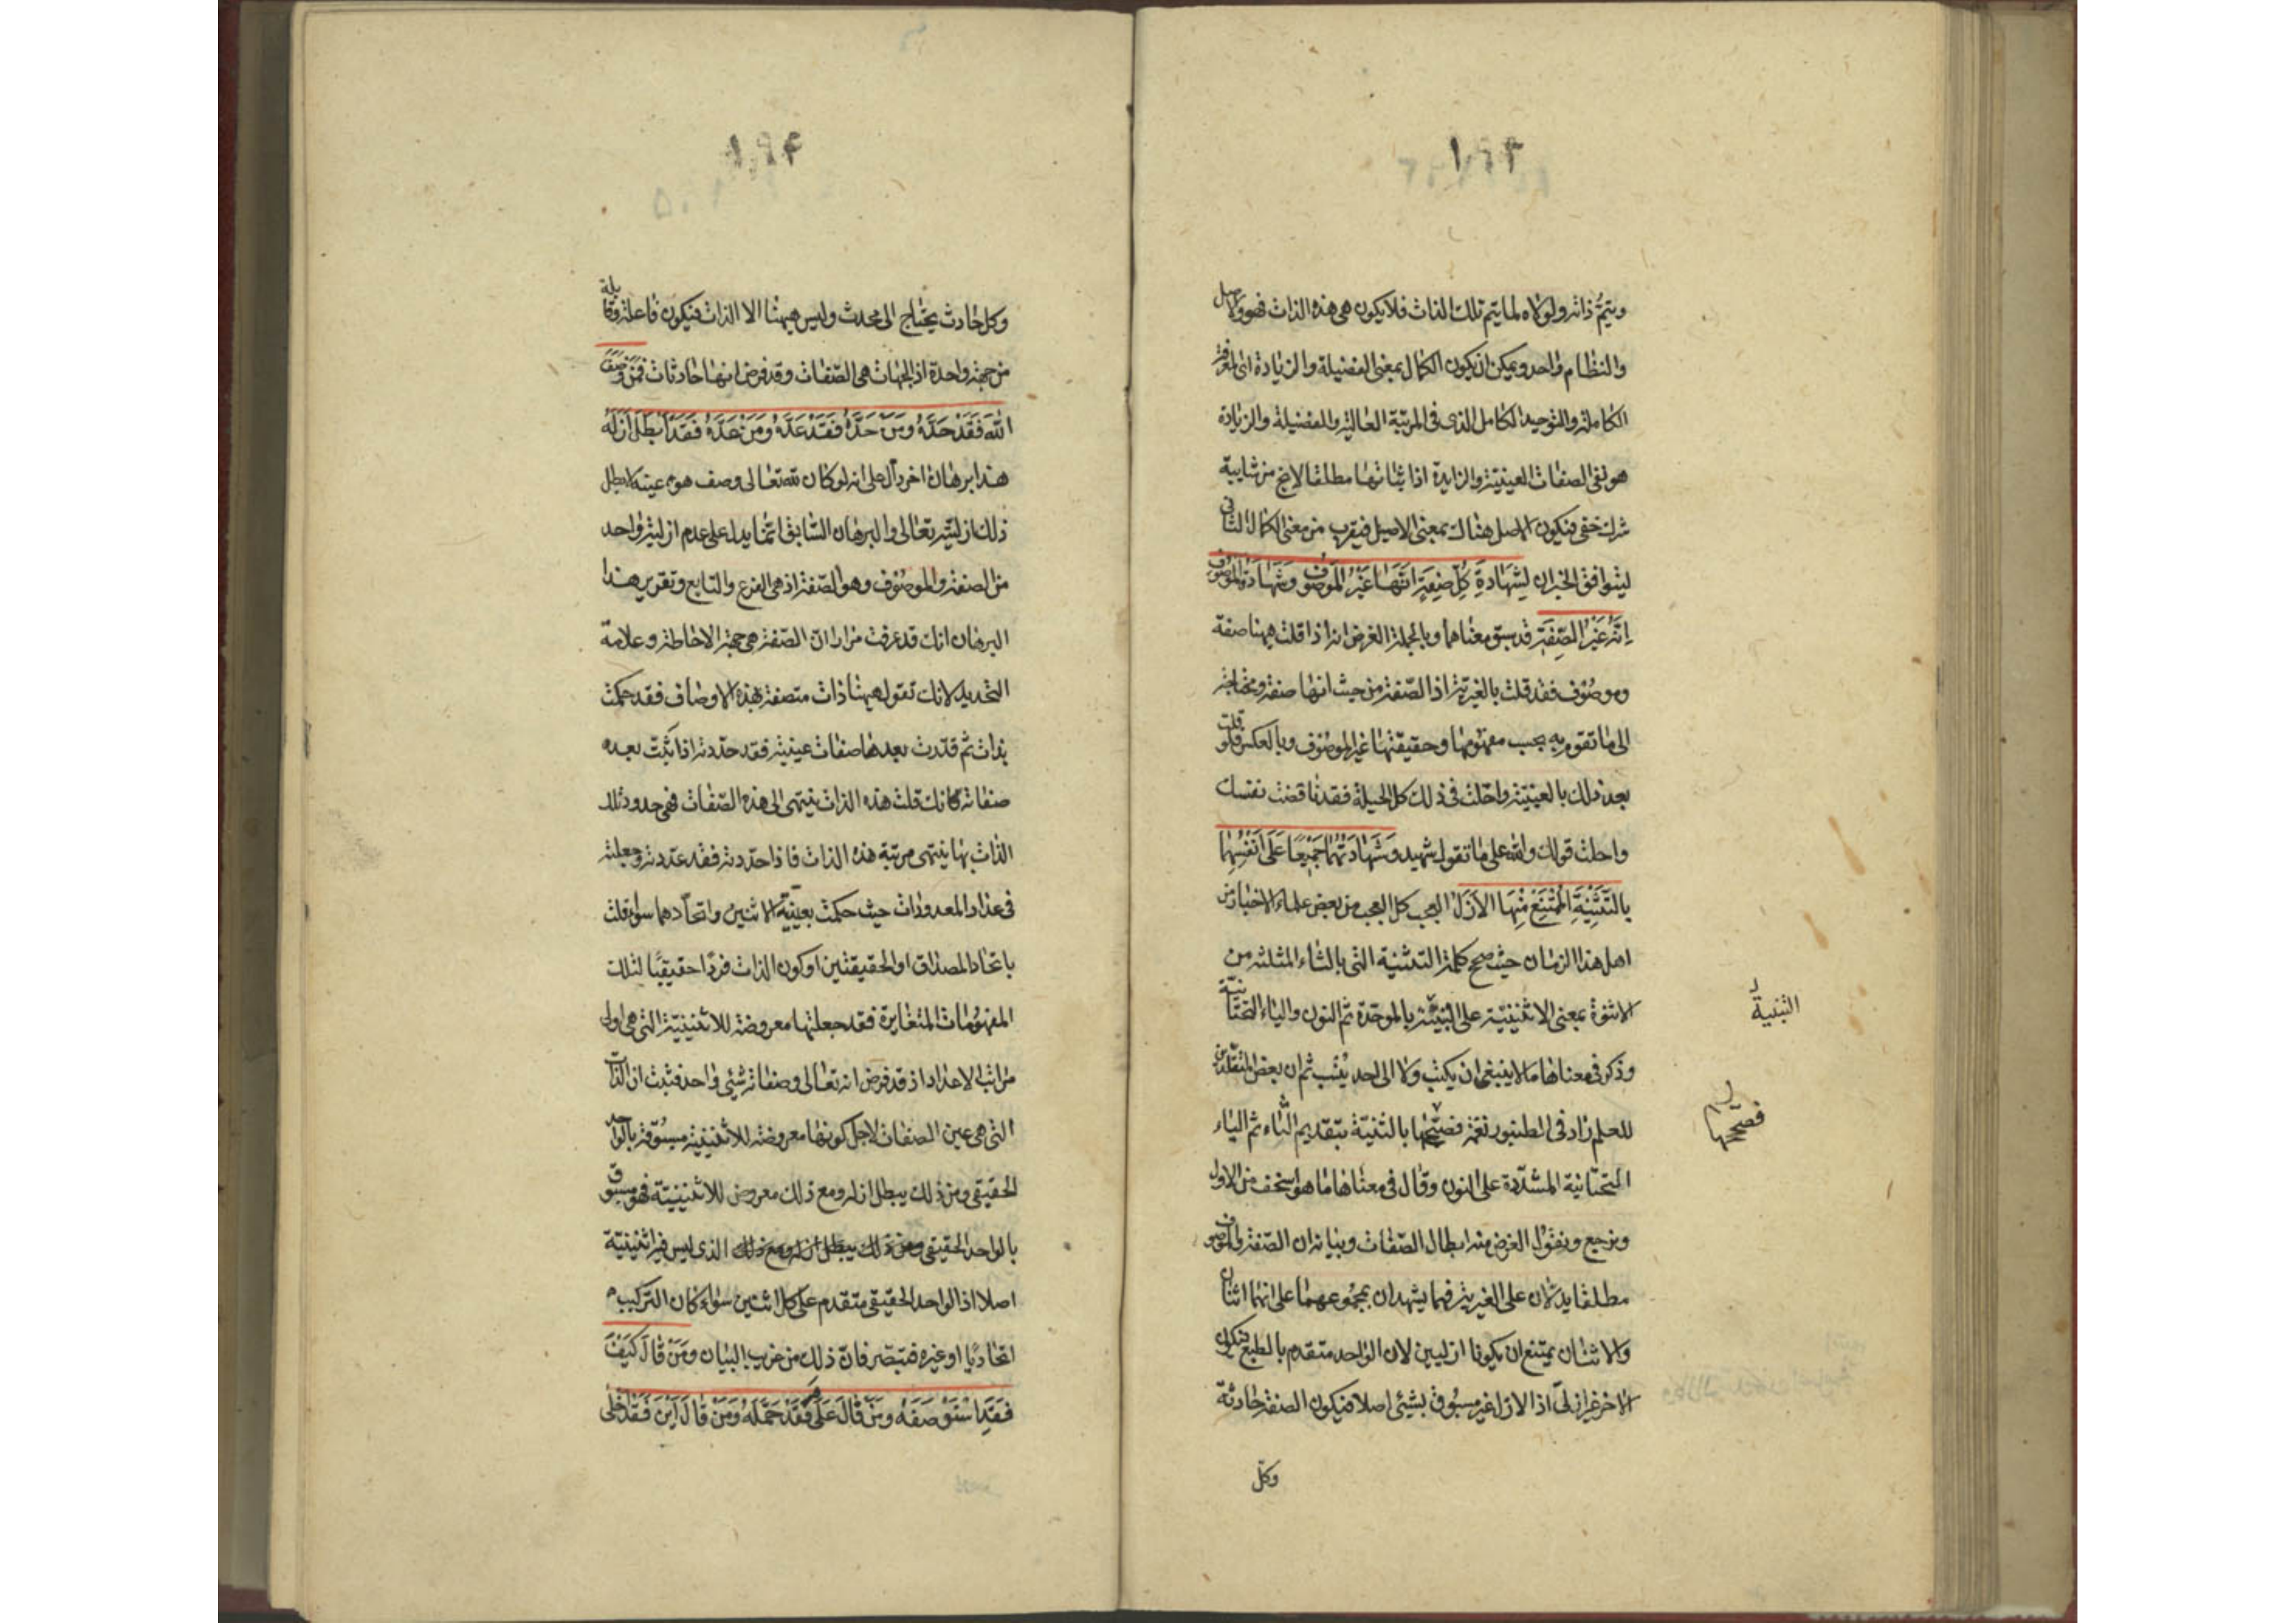 ١٩٣
ويتم ذاته ولولاه لما يتم تلك الذات فلا يكون هى هذه الذات فهو والاصل
والنظام واحد ويمكن ان يكون الكمال بمعنى الفضيلة والزيادة اى المعرفة
الكاملة والتوحيد الكامل الذى فى المرتبة العالية والفضيلة والزيادة
هو نفى الصفات العينية والزايدة اذ اثباتها مطلقا لا يخ من شايبة
شرك خفى فيكون الاصل هناك بمعنى الاصيل فيقرب من معنى الكمال الثانى
ليتوافق الخبران لِشَهَادَةِ كُلِّ صِفَةٍ اَنَّهَا غَيْرُ المَوْصُوفِ وَشَهَادَةِ المَوْصُوفِ
اِنَّهُ غَيْرُ الصِّفَةِ قد سبق معناهما وبالجملة الغرض انه اذا قلت هيهنا صفة
وموصوف فقد قلت بالغيرية اذ الصّفة من حيث انها صفة ومحتاجة
الى ما تقوم به بحسب مفهومها وحقيقتها غير الموصوف وبالعكس فلو قلت
بعد ذلك بالعينية واحلت فى ذلك كل الحيلة فقد ناقضت نفسك
واحلت قولك والله على ما تقول شهيد وَشَهَادَتُهُمَا جَمِيْعًا عَلَى اَنْفُسِهِمَا
بِالتَّثْنِيَةِ المُمْتَنِعِ مِنْهَا الاَزَلُ العجب كل العجب من بعض علماء الاخبار من
اهل هذا الزمان حيث صحح كلمة التثنية التى بالثاء المثلثة من
الاثنوة بمعنى الاثنينية على البنيّة بالموحّدة ثم النون والياء التحتانية
وذكر فى معناها ما لا ينبغى ان يكتب ولا الى احد ينسب ثم ان بعض المتقلدين
للعلم زاد فى الطنبور نغمة فصححها بالتنيّة بتقديم التاء ثم الياء
التحتانية المشدّدة على النون وقال فى معناها ما هو اسخف من الاول
ونرجع ونقول الغرض منه ابطال الصّفات وبيانه ان الصّفة والموصوف
مطلقا يدلان على الغيرية فهما يشهدان بمجموعهما على انهما اثنان
والاثنان يمتنع ان يكونا ازليين لان الواحد متقدم بالطبع فيكون
الاخر غير ازلىّ اذ الازل غير مسبوق بشئى اصلا فيكون الصفة حادثة
وكل
فصححها
١٩۴
وكل حادث يحتاج الى محدث وليس هيهنا الا الذات فيكون فاعلة وقابلة
من جهة واحدة اذ الجهات هى الصّفات وقد فرض انها حادثات فَمَنْ وَصَفَ
اللّهَ فَقَدْ حَدَّهُ وَمَنْ حَدَّهُ فَقَدْ عَدَّهُ وَمَنْ عَدَّهُ فَقَدْ اَبْطَلَ اَزَلَهُ
هذا برهان اخر دال على انه لو كان لله تعالى وصف هو عينه لابطل
ذلك ازليته تعالى والبرهان السّابق انما يدل على عدم ازلية واحد
من الصفة والموصوف وهو الصّفة اذ هى الفرع والتابع وتقرير هذا
البرهان انك قد عرفت مرارا انّ الصّفة هى جهة الاحاطة وعلامة
التحديد لانك تقول هيهنا ذات متصفة بهذه الاوصاف فقد حكمت
بذات ثم قدّرت بعدها صفات عينية فقد حدّدته اذا ثبت بعده
صفاته كانك قلت هذه الذات ينتهى الى هذه الصّفات فهى حدود تلك
الذات بها ينتهى مرتبة هذه الذات فاذا حدّدته فقد عدّدته وجعلته
فى عداد المعدودات حيث حكمت بعينيّة الاثنين واتحادهما سواء قلت
باتحاد المصداق او الحقيقتين او كون الذات فردًا حقيقيًا لتلك
المفهومات المتغايرة فقد جعلتها معروضة للاثنينيّة التى هى اولى
مراتب الاعداد اذ قد فرض انه تعالى وصفاته شئى واحد فثبت ان الذات
التى هى عين الصفات لاجل كونها معروضة للاثنينية مسبوقة بالواحد
الحقيقى ومن ذلك يبطل ازله ومع ذلك معروض للاثنينيّة فهو مسبوق
بالواحد الحقيقى الذى ليس فيه اثنينيّة
اصلا اذ الواحد الحقيقى متقدم على كل اثنين سواء كان التركيب
اتحاديّا او غيره فتبصّر فانّ ذلك من غريب البيان وَمَنْ قَالَ كَيْفَ
فَقَدِ اسْتَوْصَفَهُ وَمَنْ قَالَ عَلَى مَ فَقَدْ حَمَّلَهُ وَمَنْ قَالَ اَيْنَ فَقَدْ اَخْلَى